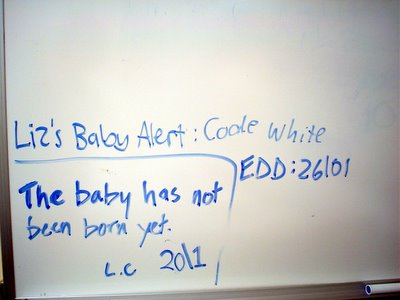 Liz's Baby Alert: Code White
EDD: 26/01
The baby has not
been born yet.
L.C 20\1